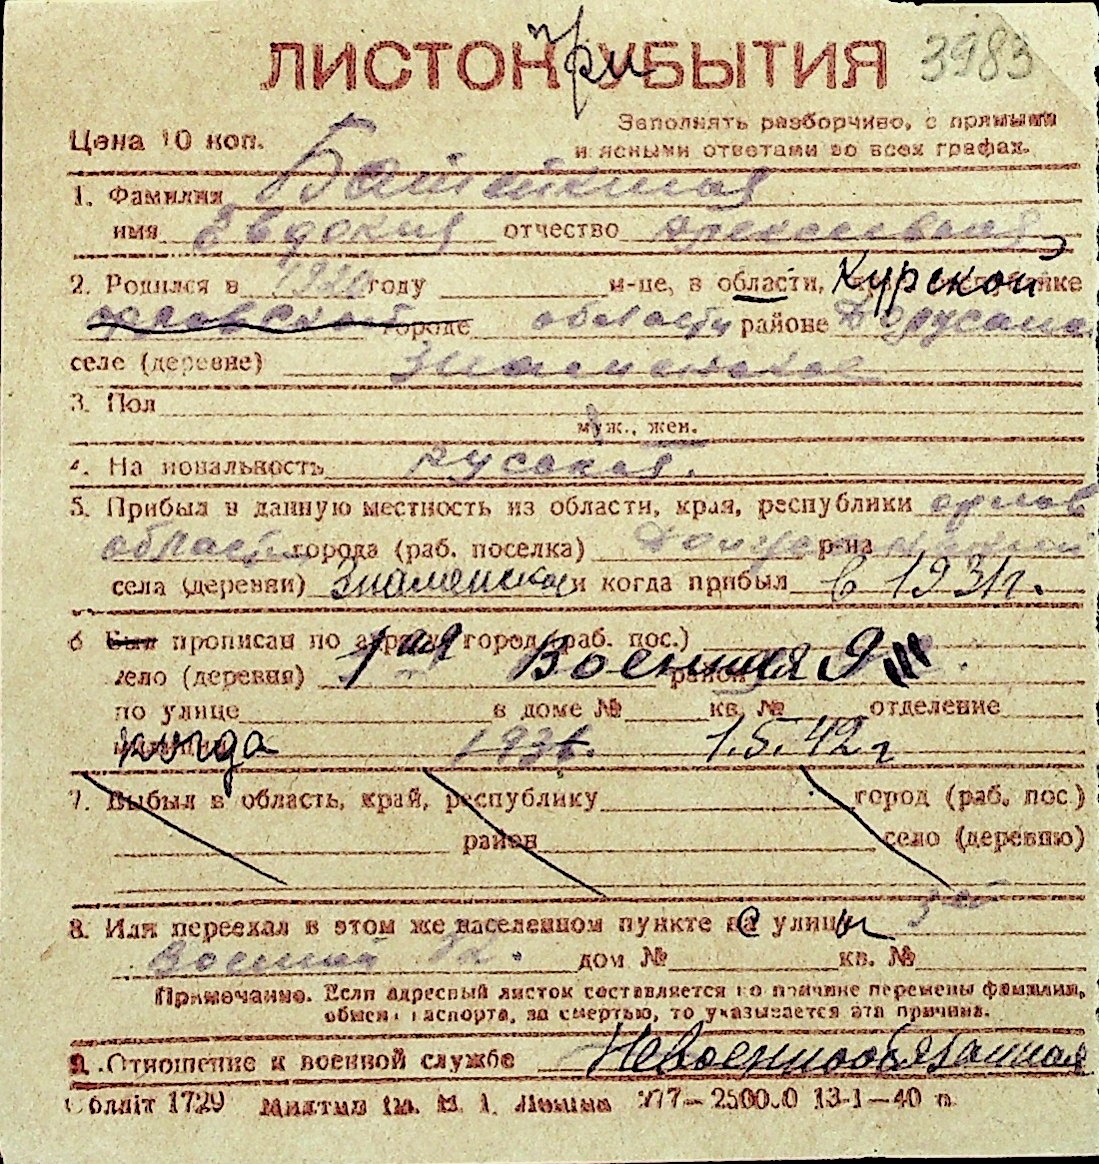 ЛИСТОК при УБЫТИЯ 3983
Цена 10 коп.
Заполнять разборчиво, с прямыми
и ясными ответами во всех графах.
1. Фамилия
имя Евдокия отчество Алексеевная
2. Родился в 1920 году м-це, в области, Курской
орловской городе области районе
селе (деревне) Знаменское
3. Пол
муж., жен.
4. Национальность русская.
5. Прибыл в данную местность из области, края, республики орлов
области города (раб. поселка) р-на
села (деревни) Знаменской и когда прибыл в 1931 г.
6 Был прописан по город (раб. пос.)
село (деревня) 1ая Военная район
по улице в доме № кв. № отделение
когда 1936. 1.5.42 г
7. Выбыл в область, край, республику город (раб. пос.)
район село (деревню)
8. Или переехал в этом же населенном пункте с улицы 5ой
Военной 12. дом № кв. №
Примечание. Если адресный листок составляется по причине перемены фамилии,
обмена паспорта, за смертью, то указывается эта причина.
9. Отношение к военной службе Невоеннообязанная
Облліт 1729 им. 13-1-40 п.